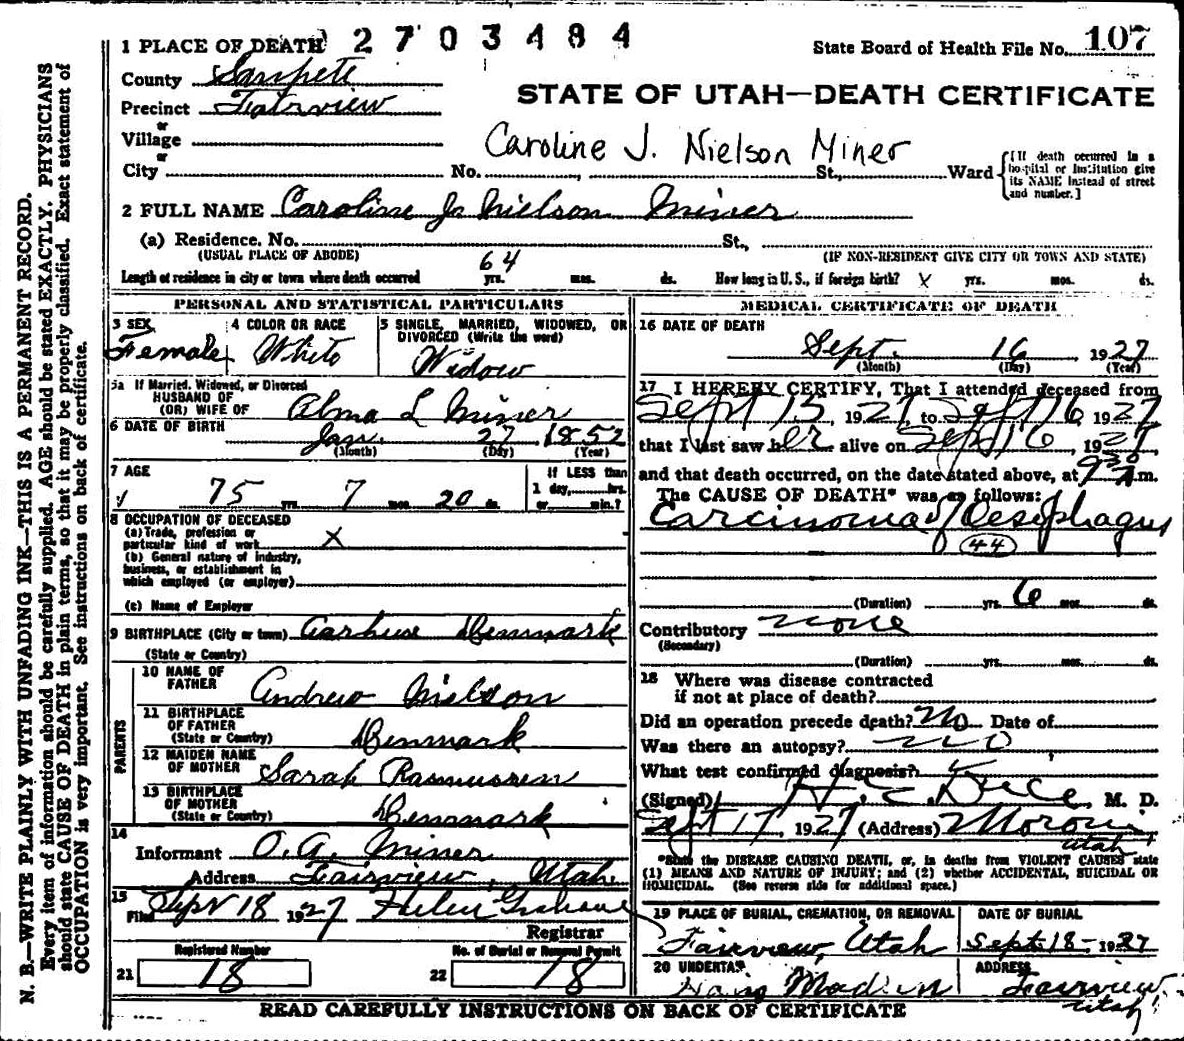 1 PLACE OF DEATH 2703484
State Board of Health File No. 107
County Sanpete
Precinct Fairview
STATE OF UTAH—DEATH CERTIFICATE
or
Village
Caroline J. Nielson Miner
or
City No. St., Ward {[If death occurred in a hospital or institution give its NAME instead of street and number.]
2 FULL NAME Caroline J. Nielson Miner
(a) Residence. No. St.,
(USUAL PLACE OF ABODE) (IF NON-RESIDENT GIVE CITY OR TOWN AND STATE)
Length of residence in city or town where death occurred 64 yrs. mos. ds. How long in U. S., if foreign birth? X yrs. mos. ds.
PERSONAL AND STATISTICAL PARTICULARS
3 SEX Female
4 COLOR OR RACE White
5 SINGLE, MARRIED, WIDOWED, OR DIVORCED (Write the word)
Widow
5a If Married, Widowed, or Divorced
HUSBAND OF
(OR) WIFE OF Alma L Miner
6 DATE OF BIRTH Jan. 27 1852
(Month) (Day) (Year)
7 AGE
75 yrs. 7 mos. 20 ds.
If LESS than
1 day, hrs.
or min.?
8 OCCUPATION OF DECEASED
(a) Trade, profession or
particular kind of work X
(b) General nature of industry,
business, or establishment in
which employed (or employer)
(c) Name of Employer
9 BIRTHPLACE (City or town) Aarhus Denmark
(State or Country)
PARENTS
10 NAME OF
FATHER Andrew Nielson
11 BIRTHPLACE
OF FATHER
(State or Country) Denmark
12 MAIDEN NAME
OF MOTHER Sarah Rasmussen
13 BIRTHPLACE
OF MOTHER
(State or Country) Denmark
14
Informant O. A. Miner
Address Fairview, Utah
15
Filed Sept 18 1927 Helen Graham
Registrar
Registered Number
21 18
No. of Burial or Removal Permit
22 18
MEDICAL CERTIFICATE OF DEATH
16 DATE OF DEATH
Sept. 16, 1927
(Month) (Day) (Year)
17 I HEREBY CERTIFY, That I attended deceased from
Sept 15 1927, to Sept 16 1927
that I last saw her alive on Sept 16, 1927
and that death occurred, on the date stated above, at 9 30 A.m.
The CAUSE OF DEATH* was as follows:
Carcinoma of Oesephagus
44
(Duration) yrs. 6 mos. ds.
Contributory none
(Secondary)
(Duration) yrs. mos. ds.
18 Where was disease contracted
if not at place of death?
Did an operation precede death? No Date of
Was there an autopsy? no
What test confirmed diagnosis?
(Signed) M. D.
Sept 17, 1927 (Address) Moroni,
Utah
*State the DISEASE CAUSING DEATH, or, in deaths from VIOLENT CAUSES state
(1) MEANS AND NATURE OF INJURY; and (2) whether ACCIDENTAL, SUICIDAL OR
HOMICIDAL. (See reverse side for additional space.)
19 PLACE OF BURIAL, CREMATION, OR REMOVAL
Fairview, Utah
DATE OF BURIAL
Sept. 18- 1927
20 UNDERTA
Madsen
ADDRESS
Fairview
Utah
READ CAREFULLY INSTRUCTIONS ON BACK OF CERTIFICATE
N. B.—WRITE PLAINLY WITH UNFADING INK—THIS IS A PERMANENT RECORD.
Every item of information should be carefully supplied. AGE should be stated EXACTLY. PHYSICIANS
should state CAUSE OF DEATH in plain terms, so that it may be properly classified. Exact statement of
OCCUPATION is very important. See instructions on back of certificate.